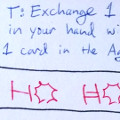 T: Exchange 1
in your hand wi
1 card in the Ag